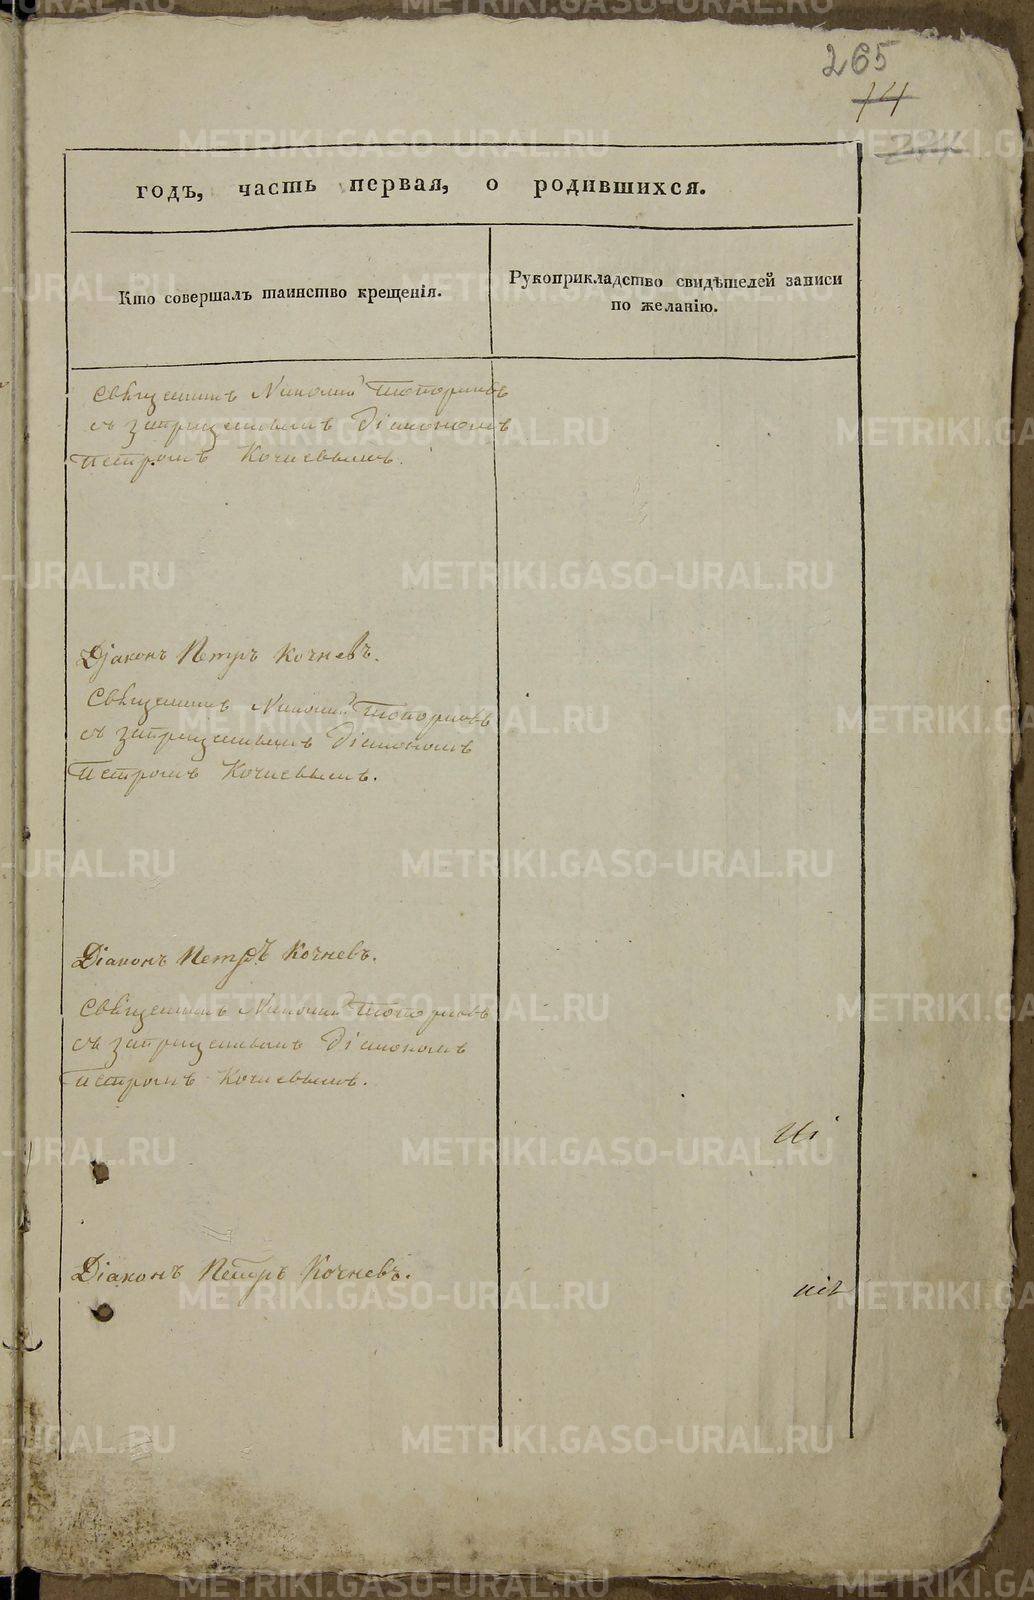 265
14
годъ, часть первая, о родившихся.
Кто совершалъ таинство крещенія.
Рукоприкладство свидѣтелей записи
по желанію.
Священникъ Николай Топорковъ
съ запрещеннымъ Діакономъ
Петромъ Кочневымъ.
Діаконъ Петръ Кочневъ.
Священникъ Николай Топорковъ
съ запрещеннымъ Діакономъ
Петромъ Кочневымъ.
Діаконъ Петръ Кочневъ.
Священникъ Николай Топорковъ
съ запрещеннымъ Діакономъ
Петромъ Кочневымъ.
Діаконъ Петръ Кочневъ.
METRIKI.GASO-URAL.RU